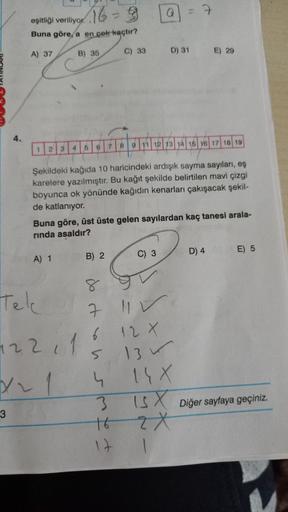 eşitliği veriliyor. 16 = 9 a = 7
Buna göre, a en çok kaçtır?
A) 37 B) 35 C) 33 D) 31 E) 29
4.
1 2 3 4 5 6 7 8 9 11 12 13 14 15 16 17 18 19
Şekildeki kağıda 10 haricindeki ardışık sayma sayıları, eş
karelere yazılmıştır. Bu kağıt şekilde belirtilen mavi çizgi
boyunca ok yönünde kağıdın kenarları çakışacak şekil-
de katlanıyor.
Buna göre, üst üste gelen sayılardan kaç tanesi arala-
rında asaldır?
A) 1 B) 2 C) 3 D) 4 E) 5
8 9 ✓
Tek 7 11 ✓
6 12 X
5 13 ✓
4 14 X
3 15 X Diğer sayfaya geçiniz.
3
16 2 X
17 1